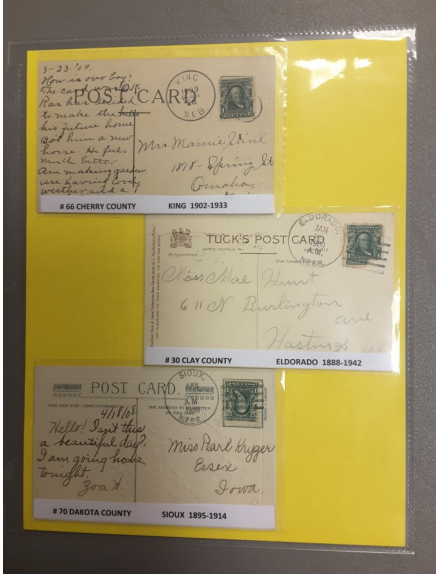 3-23-'09.
How is our boy?
The card was O.K.
Ras has decided
to make the
his future home
Got him a new
horse. He feels
much better.
Am making garden
are having lovely
weather and a
POST CARD
KING
NEB
Mrs. Mamie Lane
1818 - Spring St
Omaha
# 66 CHERRY COUNTY KING 1902-1933
TUCK'S POST CARD
ELDORADO,
JAN
A.M.
NEBR.
Miss Mae Hunt
611 N Burlington
ave
Hastings
# 30 CLAY COUNTY ELDORADO 1888-1942
POST CARD.
SIOUX,
APR
A.M.
1908
NEBR.
4/18/08.
Hello! Isn't this
a beautiful day?
I am going home
tonight.
Zoa H.
Miss Pearl Kryger
Essex
Iowa.
# 70 DAKOTA COUNTY SIOUX 1895-1914